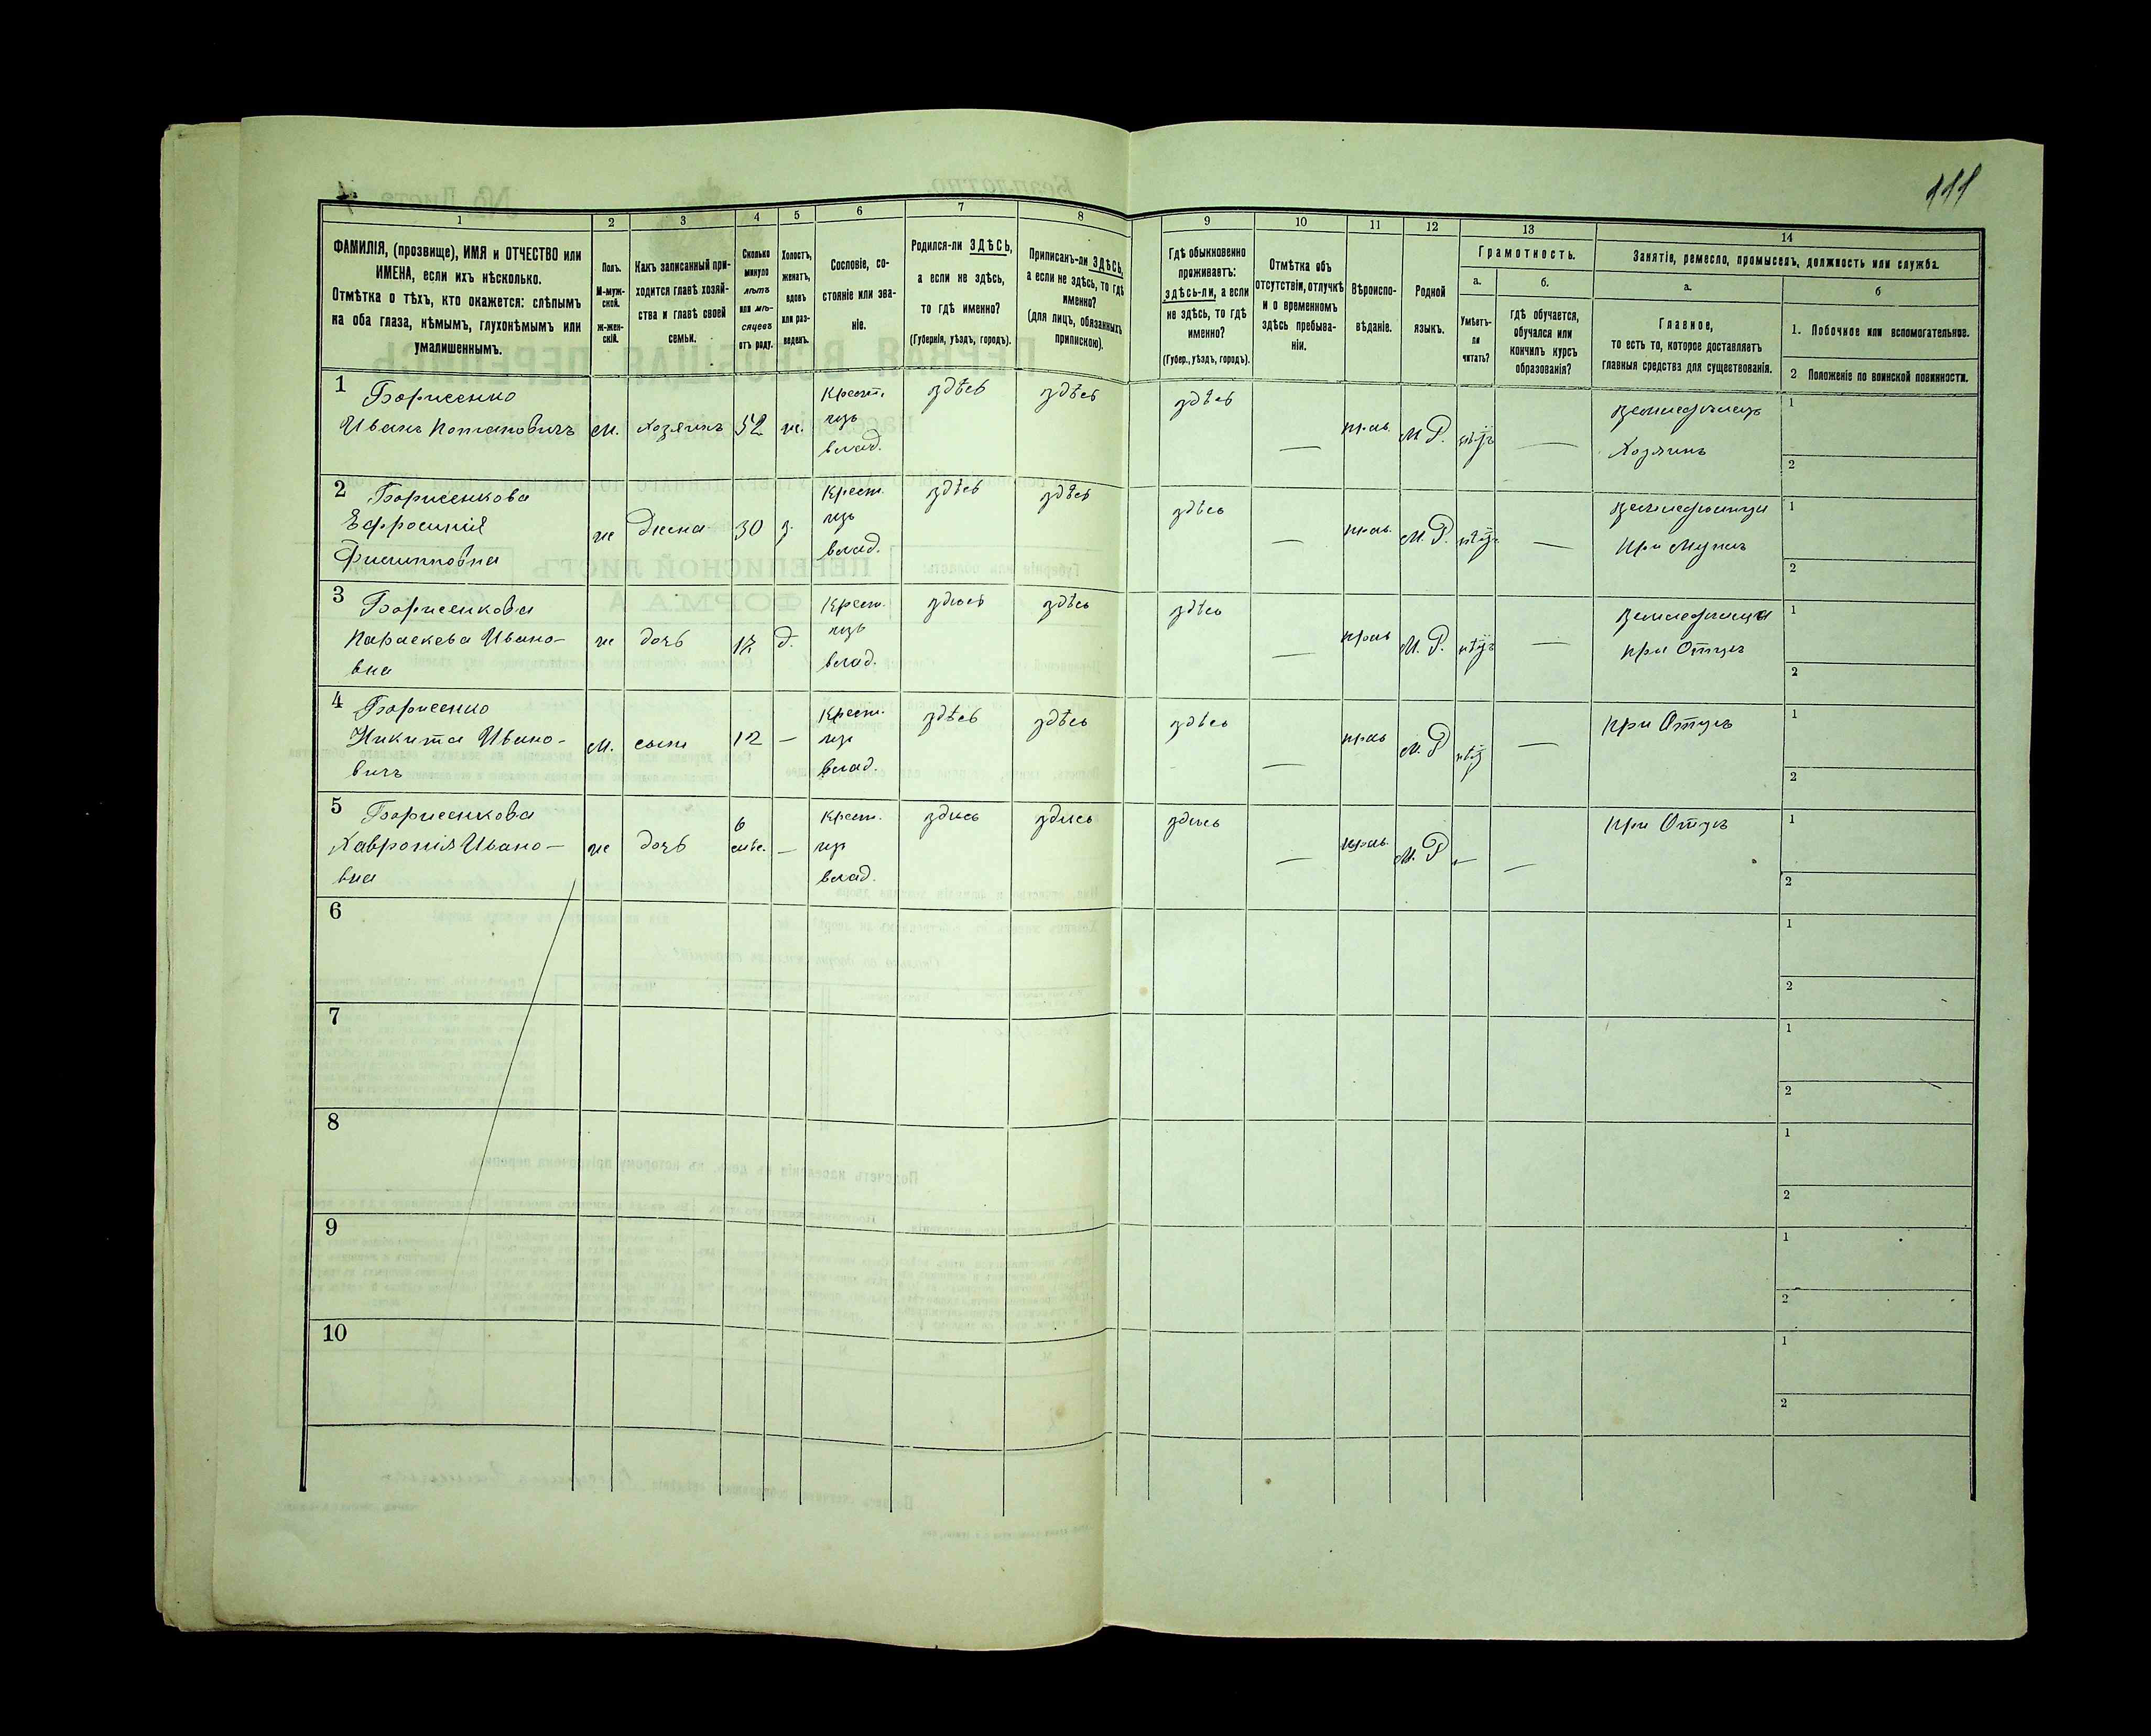 111
1
2
3
4
5
6
7
8
9
10
11
12
13
14
ФАМИЛІЯ, (прозвище), ИМЯ и ОТЧЕСТВО или
ИМЕНА, если ихъ нѣсколько.
Отмѣтка о тѣхъ, кто окажется: слѣпымъ
на оба глаза, нѣмымъ, глухонѣмымъ или
умалишеннымъ.
Полъ.
М-муж-
ской.
ж-жен-
скій.
Какъ записанный при-
ходится главѣ хозяй-
ства и главѣ своей
семьи.
Сколько
минуло
лѣтъ
или мѣ-
сяцевъ
отъ роду.
Холостъ,
женатъ,
вдовъ
или раз-
веденъ.
Сословіе, со-
стояніе или зва-
ніе.
Родился-ли ЗДѢСЬ,
а если не здѣсь,
то гдѣ именно?
(Губернія, уѣздъ, городъ).
Приписанъ-ли ЗДѢСЬ,
а если не здѣсь, то гдѣ
именно?
(для лицъ, обязанныхъ
припискою).
Гдѣ обыкновенно
проживаетъ:
ЗДѢСЬ-ЛИ, а если
не здѣсь, то гдѣ
именно?
(Губер., уѣздъ, городъ).
Отмѣтка объ
отсутствіи, отлучкѣ
и о временномъ
здѣсь пребыва-
ніи.
Вѣроиспо-
вѣданіе.
Родной
языкъ.
Грамотность.
а.
Умѣетъ-
ли
читать?
б.
гдѣ обучается,
обучался или
кончилъ курсъ
образованія?
Занятіе, ремесло, промыселъ, должность или служба.
а.
Главное,
то есть то, которое доставляетъ
главныя средства для существованія.
б
1. Побочное или вспомогательное.
2 Положеніе по воинской повинности.
1 Борисенко
Иванъ Потаповичъ
м.
хозяинъ
52
ж.
Крест.
изъ
влад.
здѣсь
здѣсь
здѣсь
—
прав.
М Р.
нѣтъ
—
земледѣлецъ
Хозяинъ
1
2
2 Борисенкова
Ефросинія
Филипповна
ж
жена
30
з.
Крест.
изъ
влад.
здѣсь
здѣсь
здѣсь
—
прав.
М. Р.
нѣтъ
—
земледѣлица
При Мужѣ
1
2
3 Борисенкова
Параскева Ивано-
вна
ж
дочь
17
д.
Крест.
изъ
влад.
здѣсь
здѣсь
здѣсь
—
прав
М. Р.
нѣтъ
—
земледѣлица
при Отцѣ
1
2
4 Борисенко
Никита Ивано-
вичъ
м.
сынъ
12
—
Крест.
изъ
влад.
здѣсь
здѣсь
здѣсь
—
прав
М. Р
нѣтъ
—
при Отцѣ
1
2
5 Борисенкова
Хавронія Ивано-
вна
ж
дочь
6
мѣс.
—
Крест.
изъ
влад.
здѣсь
здѣсь
здѣсь
—
прав.
М. Р
—
—
при Отцѣ
1
2
6
1
2
7
1
2
8
1
2
9
1
2
10
1
2